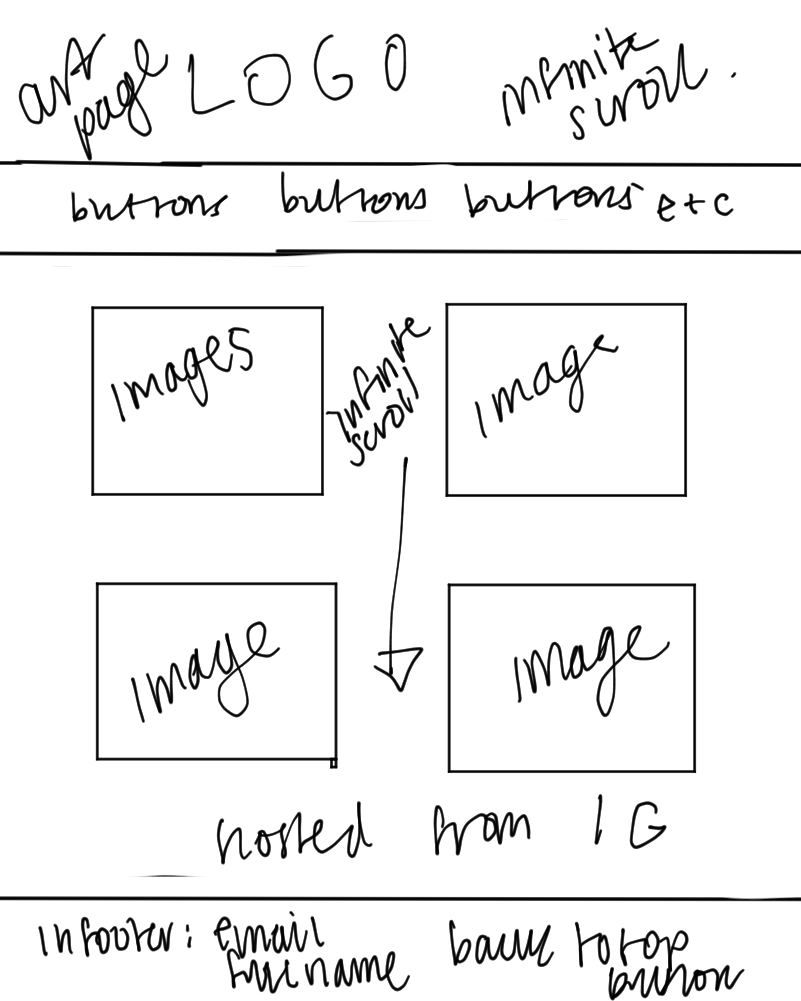 art
page
LOGO
infinite
scroll.
buttons buttons buttons etc
images
infinite
scroll
image
image
image
hosted from IG
in footer: email
full name
back to top
button